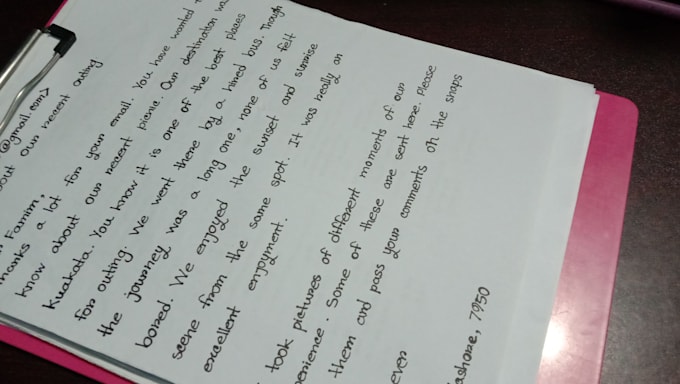 @gmail.com>
about our recent outing
Farnim,
thanks a lot for your email. You have wanted
know about our recent picnic. Our destination was
Kuakata. You know it is one of the best places
for outing. We went there by a hired bus. Though
the journey was a long one, none of us felt
bored. We enjoyed the sunset and sunrise
scene from the same spot. It was really an
excellent enjoyment.
took pictures of different moments of our
perience. Some of these are sent here. Please
them and pass your comments on the snaps
ever
ashore, 7950